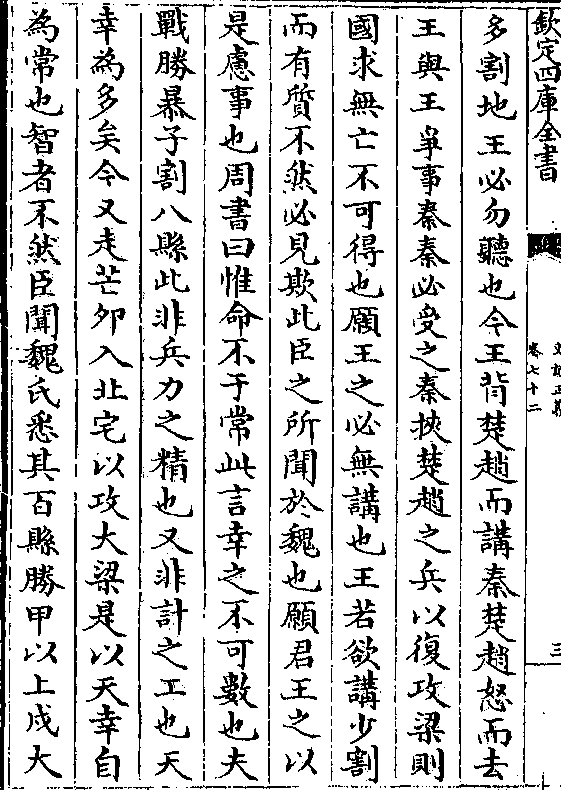 欽定四庫全書
史記正義
卷七十二
三
多割地王必勿聽也今王背楚趙而講秦楚趙怒而去
王與王爭事秦秦必受之秦挾楚趙之兵以復攻梁則
國求無亡不可得也願王之必無講也王若欲講少割
而有質不然必見欺此臣之所聞於魏也願君王之以
是慮事也周書曰惟命不于常此言幸之不可數也夫
戰勝暴子割八縣此非兵力之精也又非計之工也天
幸為多矣今又走芒卯入北宅以攻大梁是以天幸自
為常也智者不然臣聞魏氏悉其百縣勝甲以上戍大